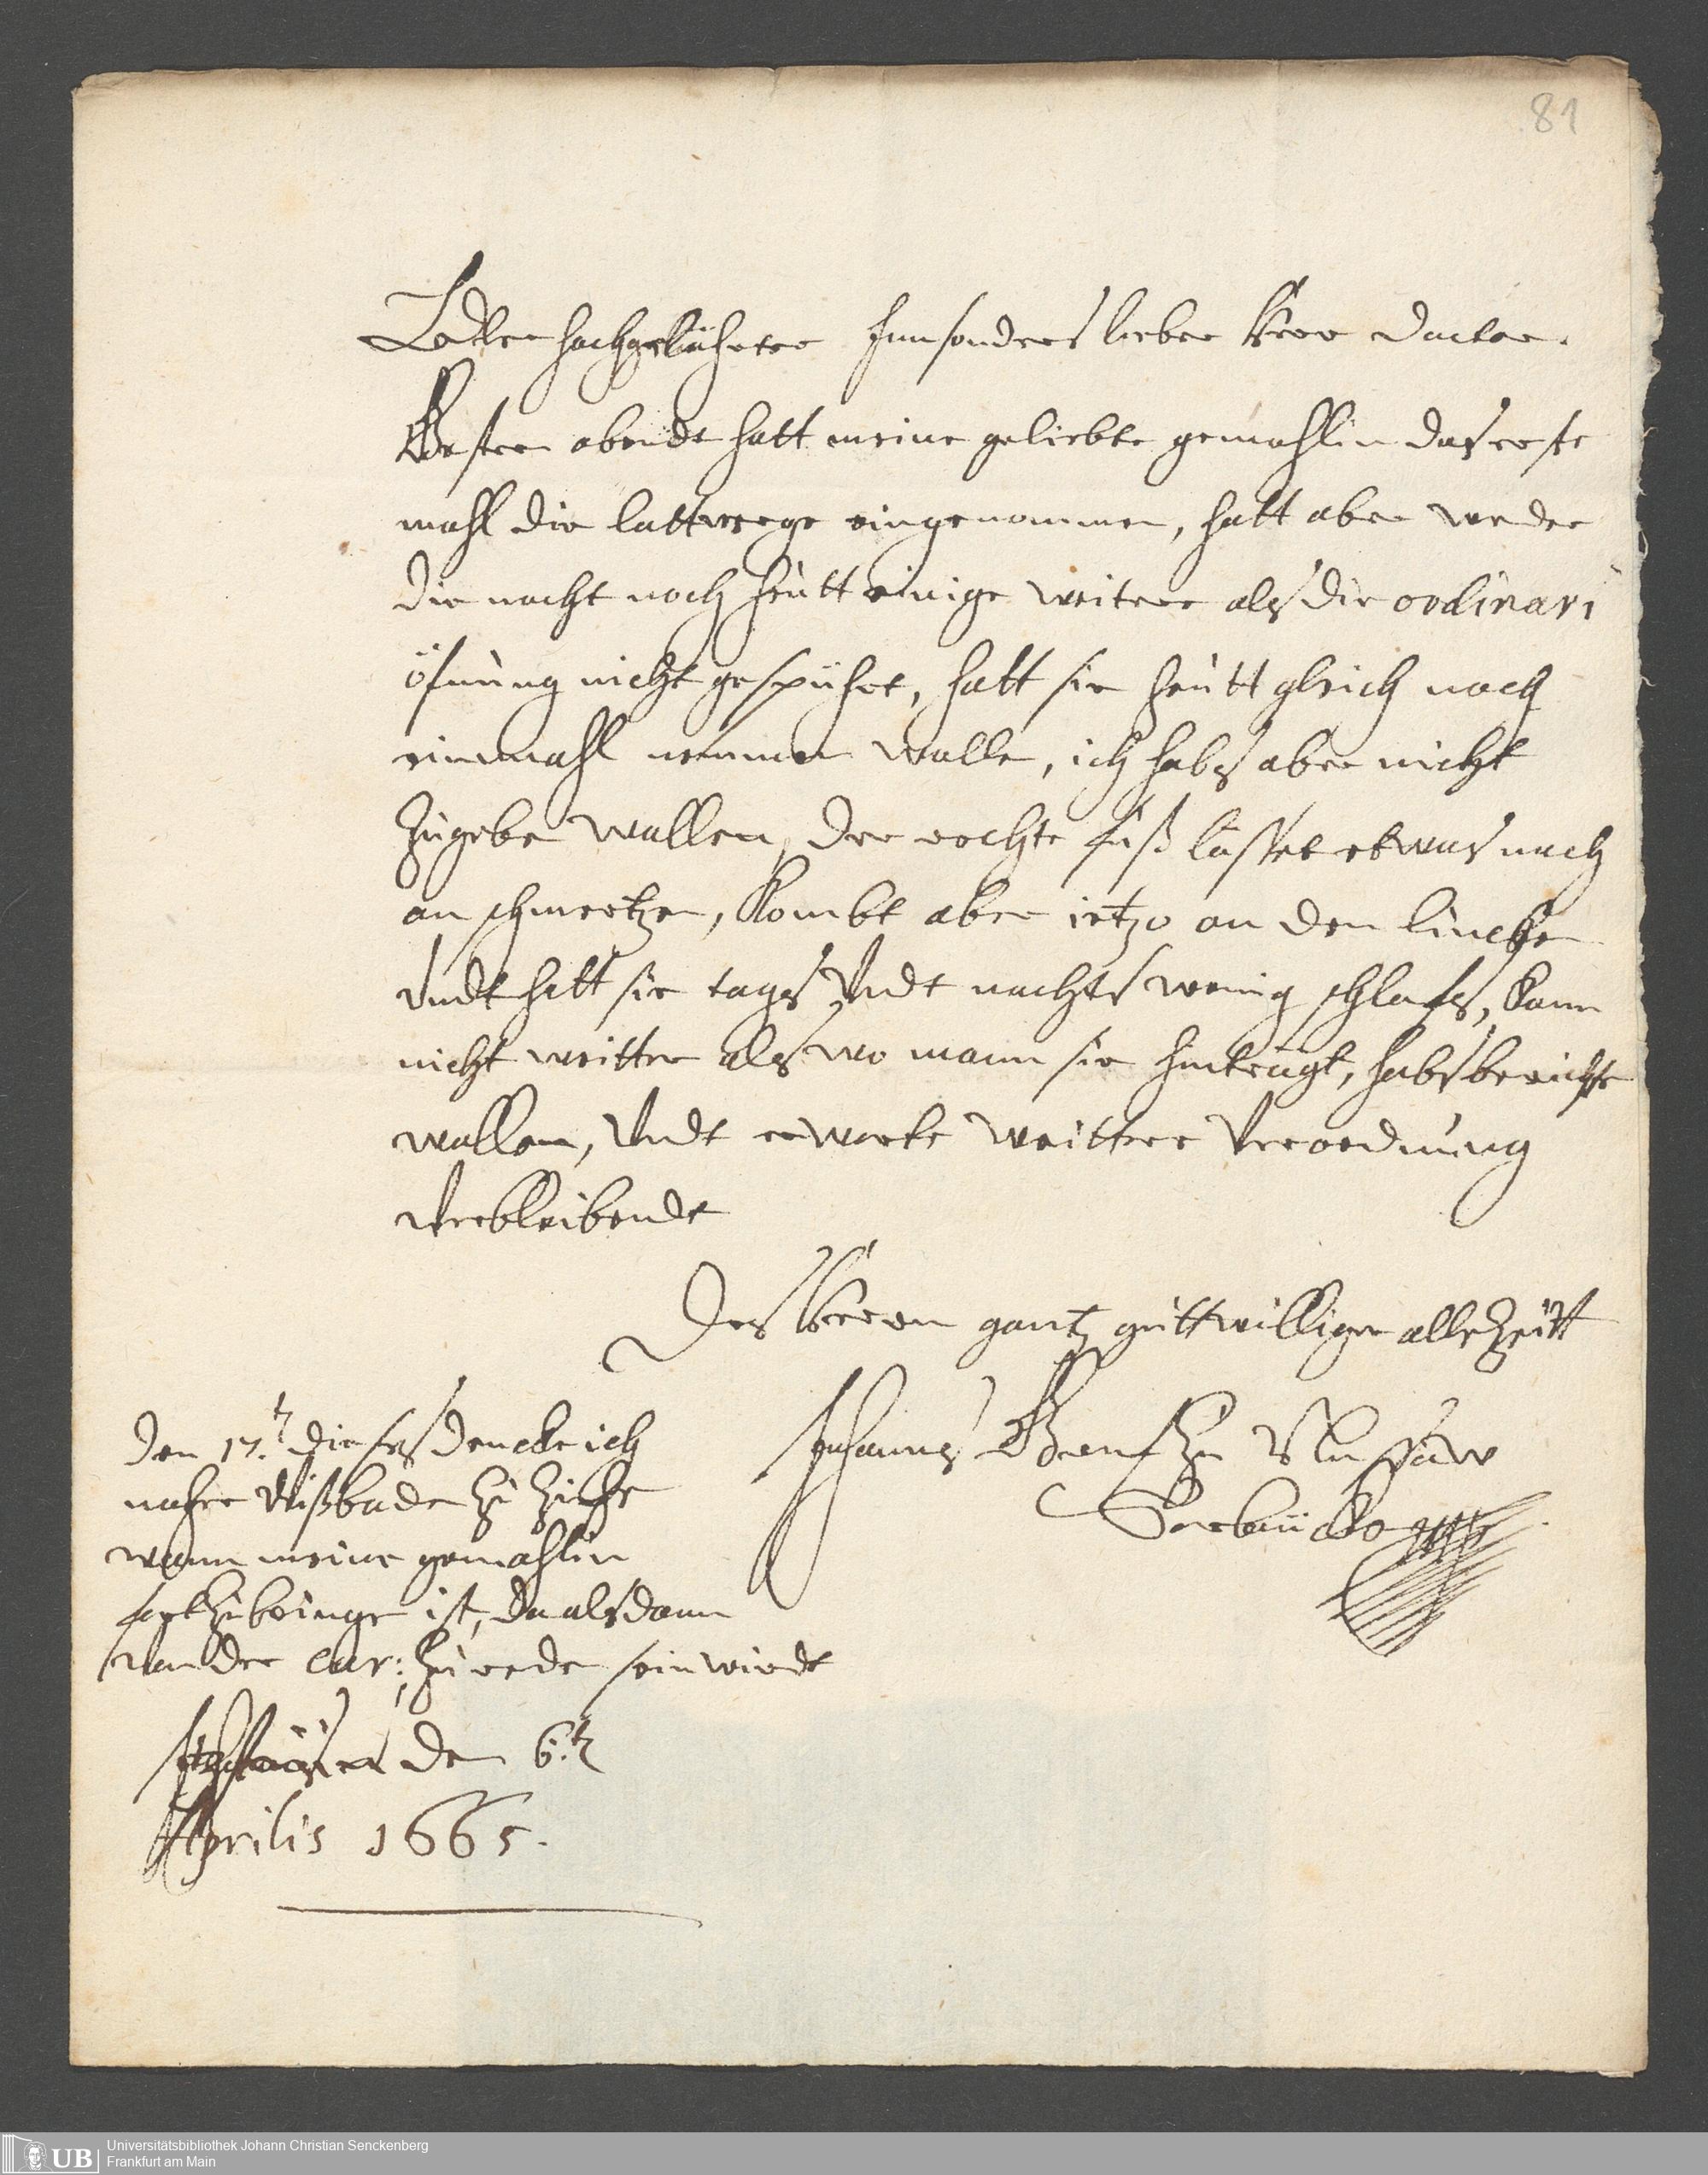 81
Edler hochgelährter Innsonders lieber Herr Doctor.
Gestern abendt hatt meine geliebte gemahlin das erste
mahl die lattwerge eingenommen, hatt aber weder
die nacht noch heütt einige weitere als die ordinari
öfnung nicht gespühret, hatt sie heütt gleich noch
einmahl nemmen wolle, ich habs aber nicht
zugeben wollen, der rechte fuß lässet etwas nach
an schmertzen, Kombt aber ietzo an den lincken
Undt hatt sie tags Undt nachts wenig schlafs, Kann
nicht weitter als wo mann sie hinträgt, habs berichte
wollen, Undt erwarte weittere Verordnung
Verbleibendt
Des Herrn gantz guttwilliger allezeitt
Johannes Graff zu Nassaw
Sarbrücken
den 17.t dieses dencke ich
naher Wißbaden zu ziehe
wann meine gemahlin
fortzubringe ist, da alsdann
von der cur: zu rede sein wirdt
den 6.t
Aprilis 1665.
UB Universitätsbibliothek Johann Christian Senckenberg
Frankfurt am Main